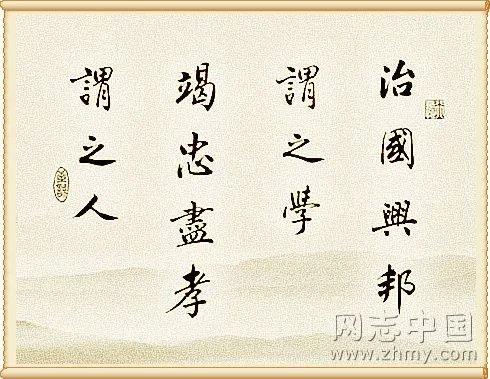 治國興邦
謂之學
竭忠盡孝
謂之人
网志中国
www.zhmy.com